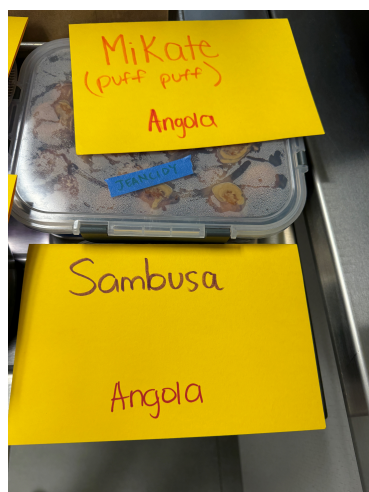 Mikate
(puff puff)
Angola
JEANCIDY
Sambusa
Angola